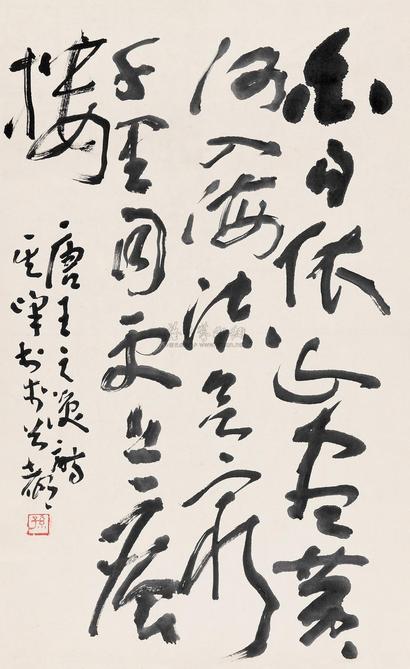 白日依山尽黄
河入海流欲穷
千里目更上一层
楼
唐王之涣诗
其峰书于首都
孫